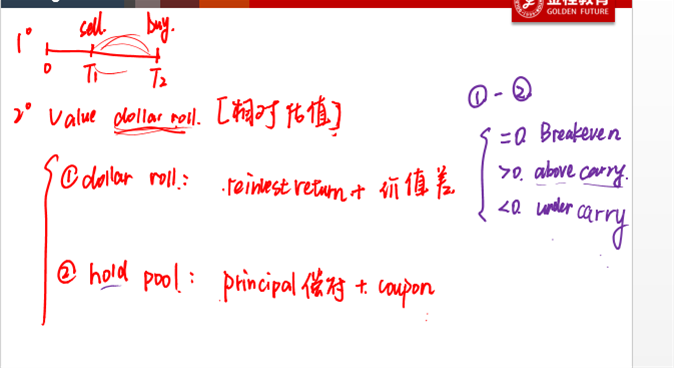 金程教育
GOLDEN FUTURE
sell. buy.
1°
0 T1 T2
2° Value dollar roll. [相对估值]
① dollar roll: reinvest return + 价值差
② hold pool: principal偿付 + coupon
① - ②
=0 Breakeven
>0. above carry.
<0. under carry